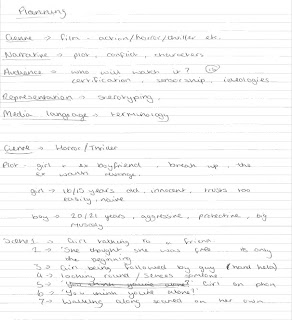 Planning
Genre → film - action/horror/thriller etc.
Narrative → plot, conflict, characters
Audience → who will watch it? (15)
certification, censorship, ideologies
Representation → sterotyping
Media language → terminology
Genre → Horror/Thriller
Plot - girl + ex boyfriend, break up, the
ex wants revenge.
girl → 16/15 years old, innocent, trusts too
easily, naive
boy → 20/21 years, aggressive, protective, big
muscly
Scenes 1 - Girl talking to a friend
2 - 'She thought she was free' is only
the beginning
3 → Girl being followed by guy (hand held)
4 → looking round / senses someone
5 → You think you're alone? Girl on phone
6 → 'You think you're alone?'
7 → Walking along scared on her own